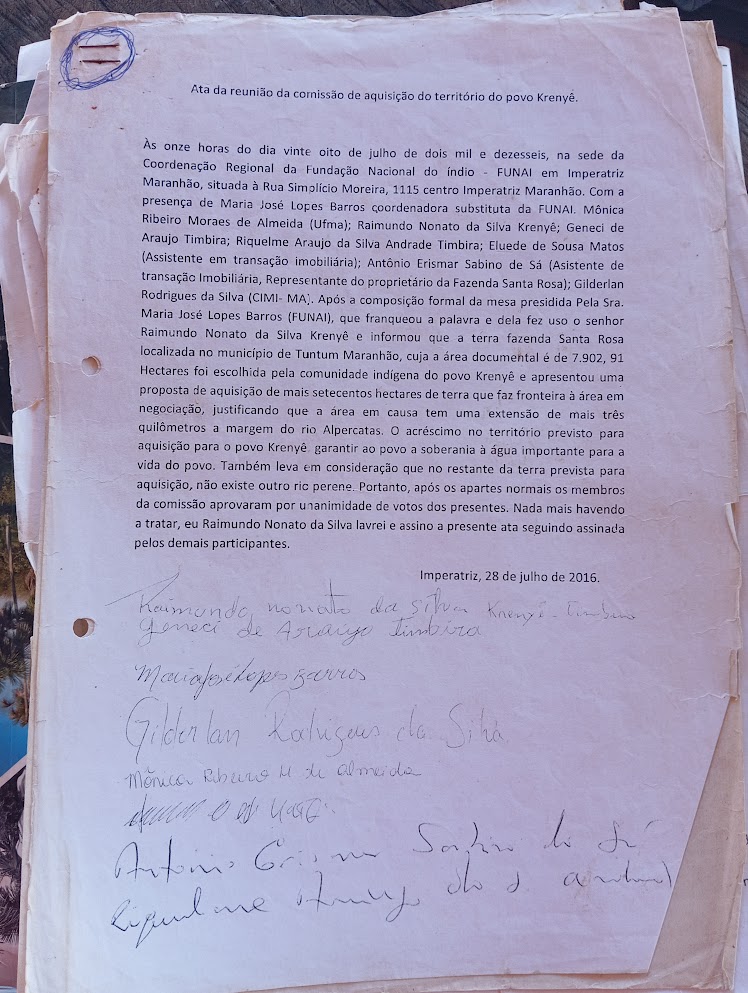 Ata da reunião da comissão de aquisição do território do povo Krenyê.
Às onze horas do dia vinte oito de julho de dois mil e dezesseis, na sede da
Coordenação Regional da Fundação Nacional do índio - FUNAI em Imperatriz
Maranhão, situada à Rua Simplício Moreira, 1115 centro Imperatriz Maranhão. Com a
presença de Maria José Lopes Barros coordenadora substituta da FUNAI. Mônica
Ribeiro Moraes de Almeida (Ufma); Raimundo Nonato da Silva Krenyê; Geneci de
Araujo Timbira; Riquelme Araujo da Silva Andrade Timbira; Eluede de Sousa Matos
(Assistente em transação imobiliária); Antônio Erismar Sabino de Sá (Asistente de
transação Imobiliária, Representante do proprietário da Fazenda Santa Rosa); Gilderlan
Rodrigues da Silva (CIMI- MA). Após a composição formal da mesa presidida Pela Sra.
Maria José Lopes Barros (FUNAI), que franqueou a palavra e dela fez uso o senhor
Raimundo Nonato da Silva Krenyê e informou que a terra fazenda Santa Rosa
localizada no município de Tuntum Maranhão, cuja a área documental é de 7.902, 91
Hectares foi escolhida pela comunidade indígena do povo Krenyê e apresentou uma
proposta de aquisição de mais setecentos hectares de terra que faz fronteira à área em
negociação, justificando que a área em causa tem uma extensão de mais três
quilômetros a margem do rio Alpercatas. O acréscimo no território previsto para
aquisição para o povo Krenyê garantir ao povo a soberania à água importante para a
vida do povo. Também leva em consideração que no restante da terra prevista para
aquisição, não existe outro rio perene. Portanto, após os apartes normais os membros
da comissão aprovaram por unanimidade de votos dos presentes. Nada mais havendo
a tratar, eu Raimundo Nonato da Silva lavrei e assino a presente ata seguindo assinada
pelos demais participantes.
Imperatriz, 28 de julho de 2016.
Raimundo nonato da Silva Krenyê-Timbira
Geneci de Araujo Timbira
Maria José Lopes Barros
Gilderlan Rodrigues da Silva
Mônica Ribeiro M de Almeida
Antônio Erismar Sabino de Sá
Riquelme Araujo da S. Andrade